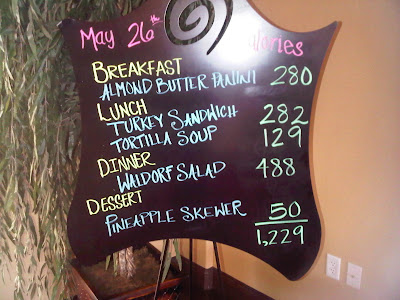 May 26th
BREAKFAST
ALMOND BUTTER PANINI 280
LUNCH
TURKEY SANDWICH 282
TORTILLA SOUP 129
DINNER
WALDORF SALAD 488
DESSERT
PINEAPPLE SKEWER 50
1,229